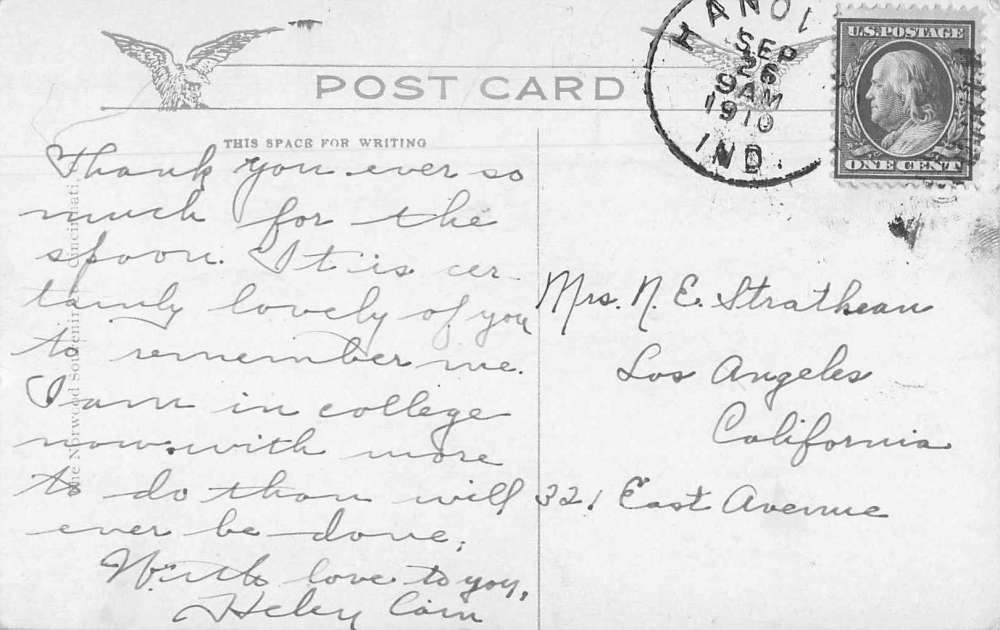 POST CARD
THIS SPACE FOR WRITING
HANO
SEP
26
9AM
1910
IND.
U.S. POSTAGE
ONE CENT
Thank you ever so
much for the
spoon. It is cer-
tainly lovely of you
to remember me.
I am in college
now with more
to do than will
ever be done.
With love to you,
Cain
Mrs. N. E. Strathean
Los Angeles
California
321 East Avenue
The Norwood Souvenir Cincinnati